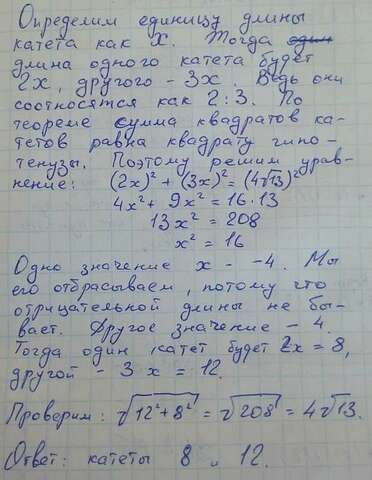 Определим единицу длины
катета как X. Тогда один
длина одного катета будет
2x, другого - 3x. Ведь они
соотносятся как 2:3. По
теореме сумма квадратов ка-
тетов равна квадрату гипо-
тенузы. Поэтому решим урав-
нение: (2x)² + (3x)² = (4√13)²
4x² + 9x² = 16·13
13x² = 208
x² = 16
Одно значение x - -4. Мы
его отбрасываем, потому что
отрицательной длины не бы-
вает. Другое значение - 4.
Тогда один катет будет 2x = 8,
другой - 3x = 12.
Проверим: √12²+8² = √208 = 4√13.
Ответ: катеты 8 и 12.